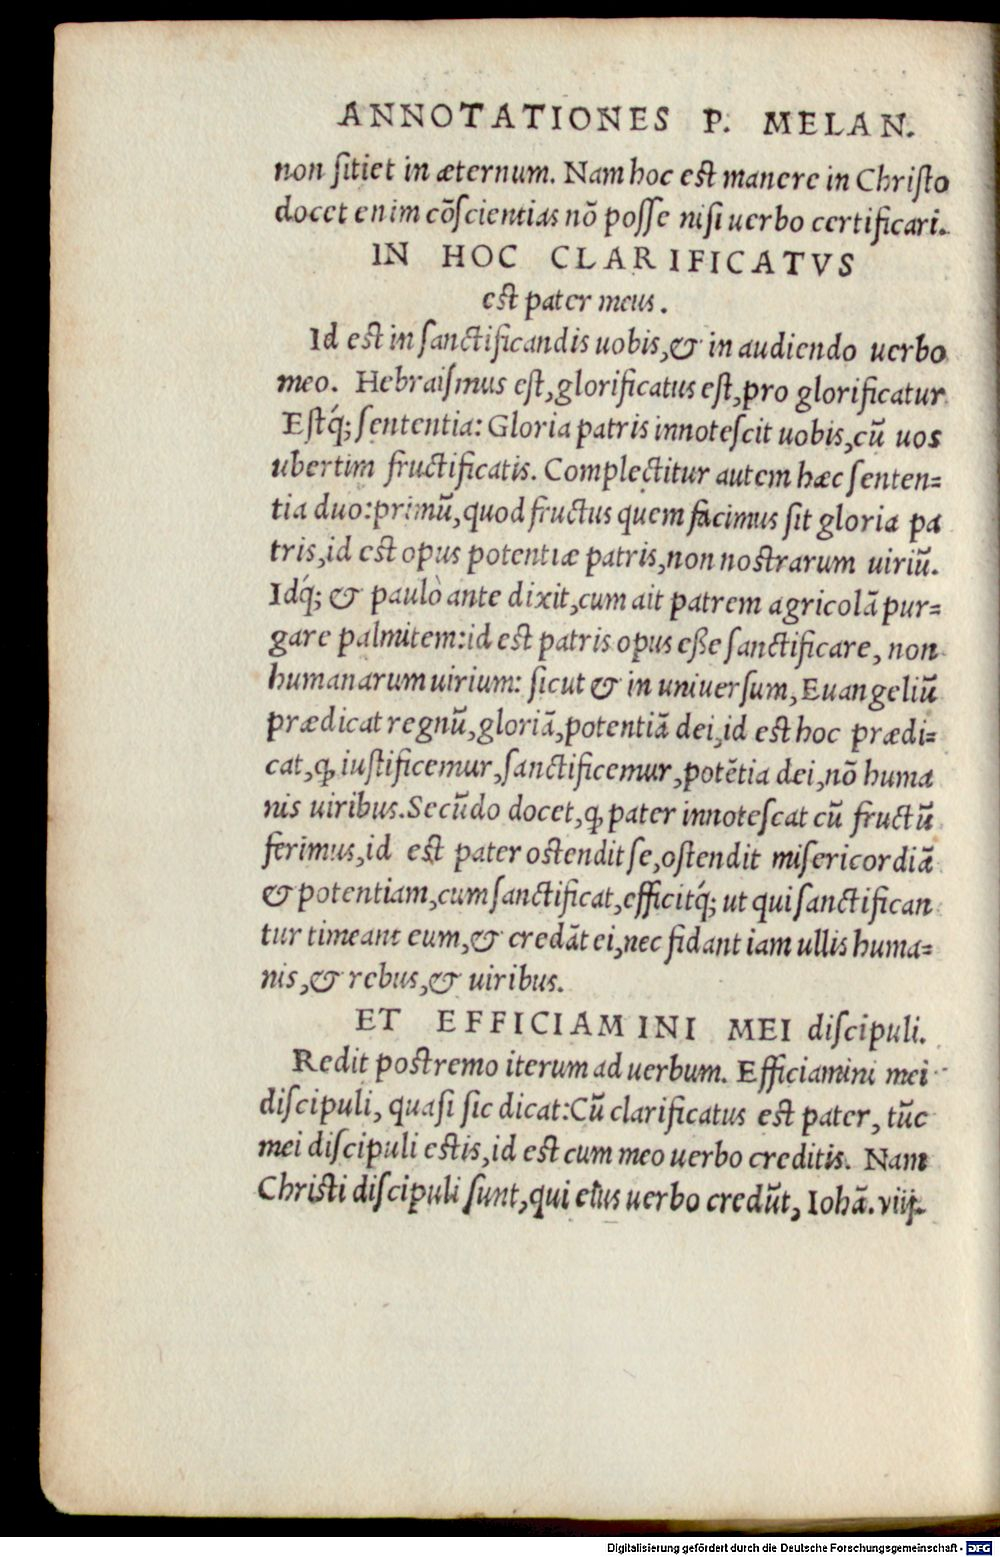 ANNOTATIONES P. MELAN.
non ſitiet in æternum. Nam hoc eſt manere in Chriſto
docet enim cōſcientias nō poſſe niſi uerbo certificari.
IN HOC CLARIFICATVS
eſt pater meus.
Id eſt in ſanctificandis uobis, & in audiendo uerbo
meo. Hebraiſmus eſt, glorificatus eſt, pro glorificatur
Eſtq́; ſententia: Gloria patris innoteſcit uobis, cū uos
ubertim fructificatis. Complectitur autem hæc ſenten=
tia duo: primū, quod fructus quem facimus ſit gloria pa
tris, id eſt opus potentiæ patris, non noſtrarum uiriū.
Idq́; & paulò ante dixit, cum ait patrem agricolā pur=
gare palmitem: id eſt patris opus eſſe ſanctificare, non
humanarum uirium: ſicut & in uniuerſum, Euangeliū
prædicat regnū, gloriā, potentiā dei, id eſt hoc prædi=
cat, ꝙ iuſtificemur, ſanctificemur, potētia dei, nō huma
nis uiribus. Secūdo docet, ꝙ pater innoteſcat cū fructū
ferimus, id eſt pater oſtendit ſe, oſtendit miſericordiā
& potentiam, cum ſanctificat, efficitq́; ut qui ſanctifican
tur timeant eum, & credāt ei, nec fidant iam ullis huma=
nis, & rebus, & uiribus.
ET EFFICIAMINI MEI diſcipuli.
Redit poſtremo iterum ad uerbum. Efficiamini mei
diſcipuli, quaſi ſic dicat: Cū clarificatus eſt pater, tūc
mei diſcipuli eſtis, id eſt cum meo uerbo creditis. Nam
Chriſti diſcipuli ſunt, qui eius uerbo credūt, Iohā. viij.
Digitalisierung gefördert durch die Deutsche Forschungsgemeinschaft - DFG